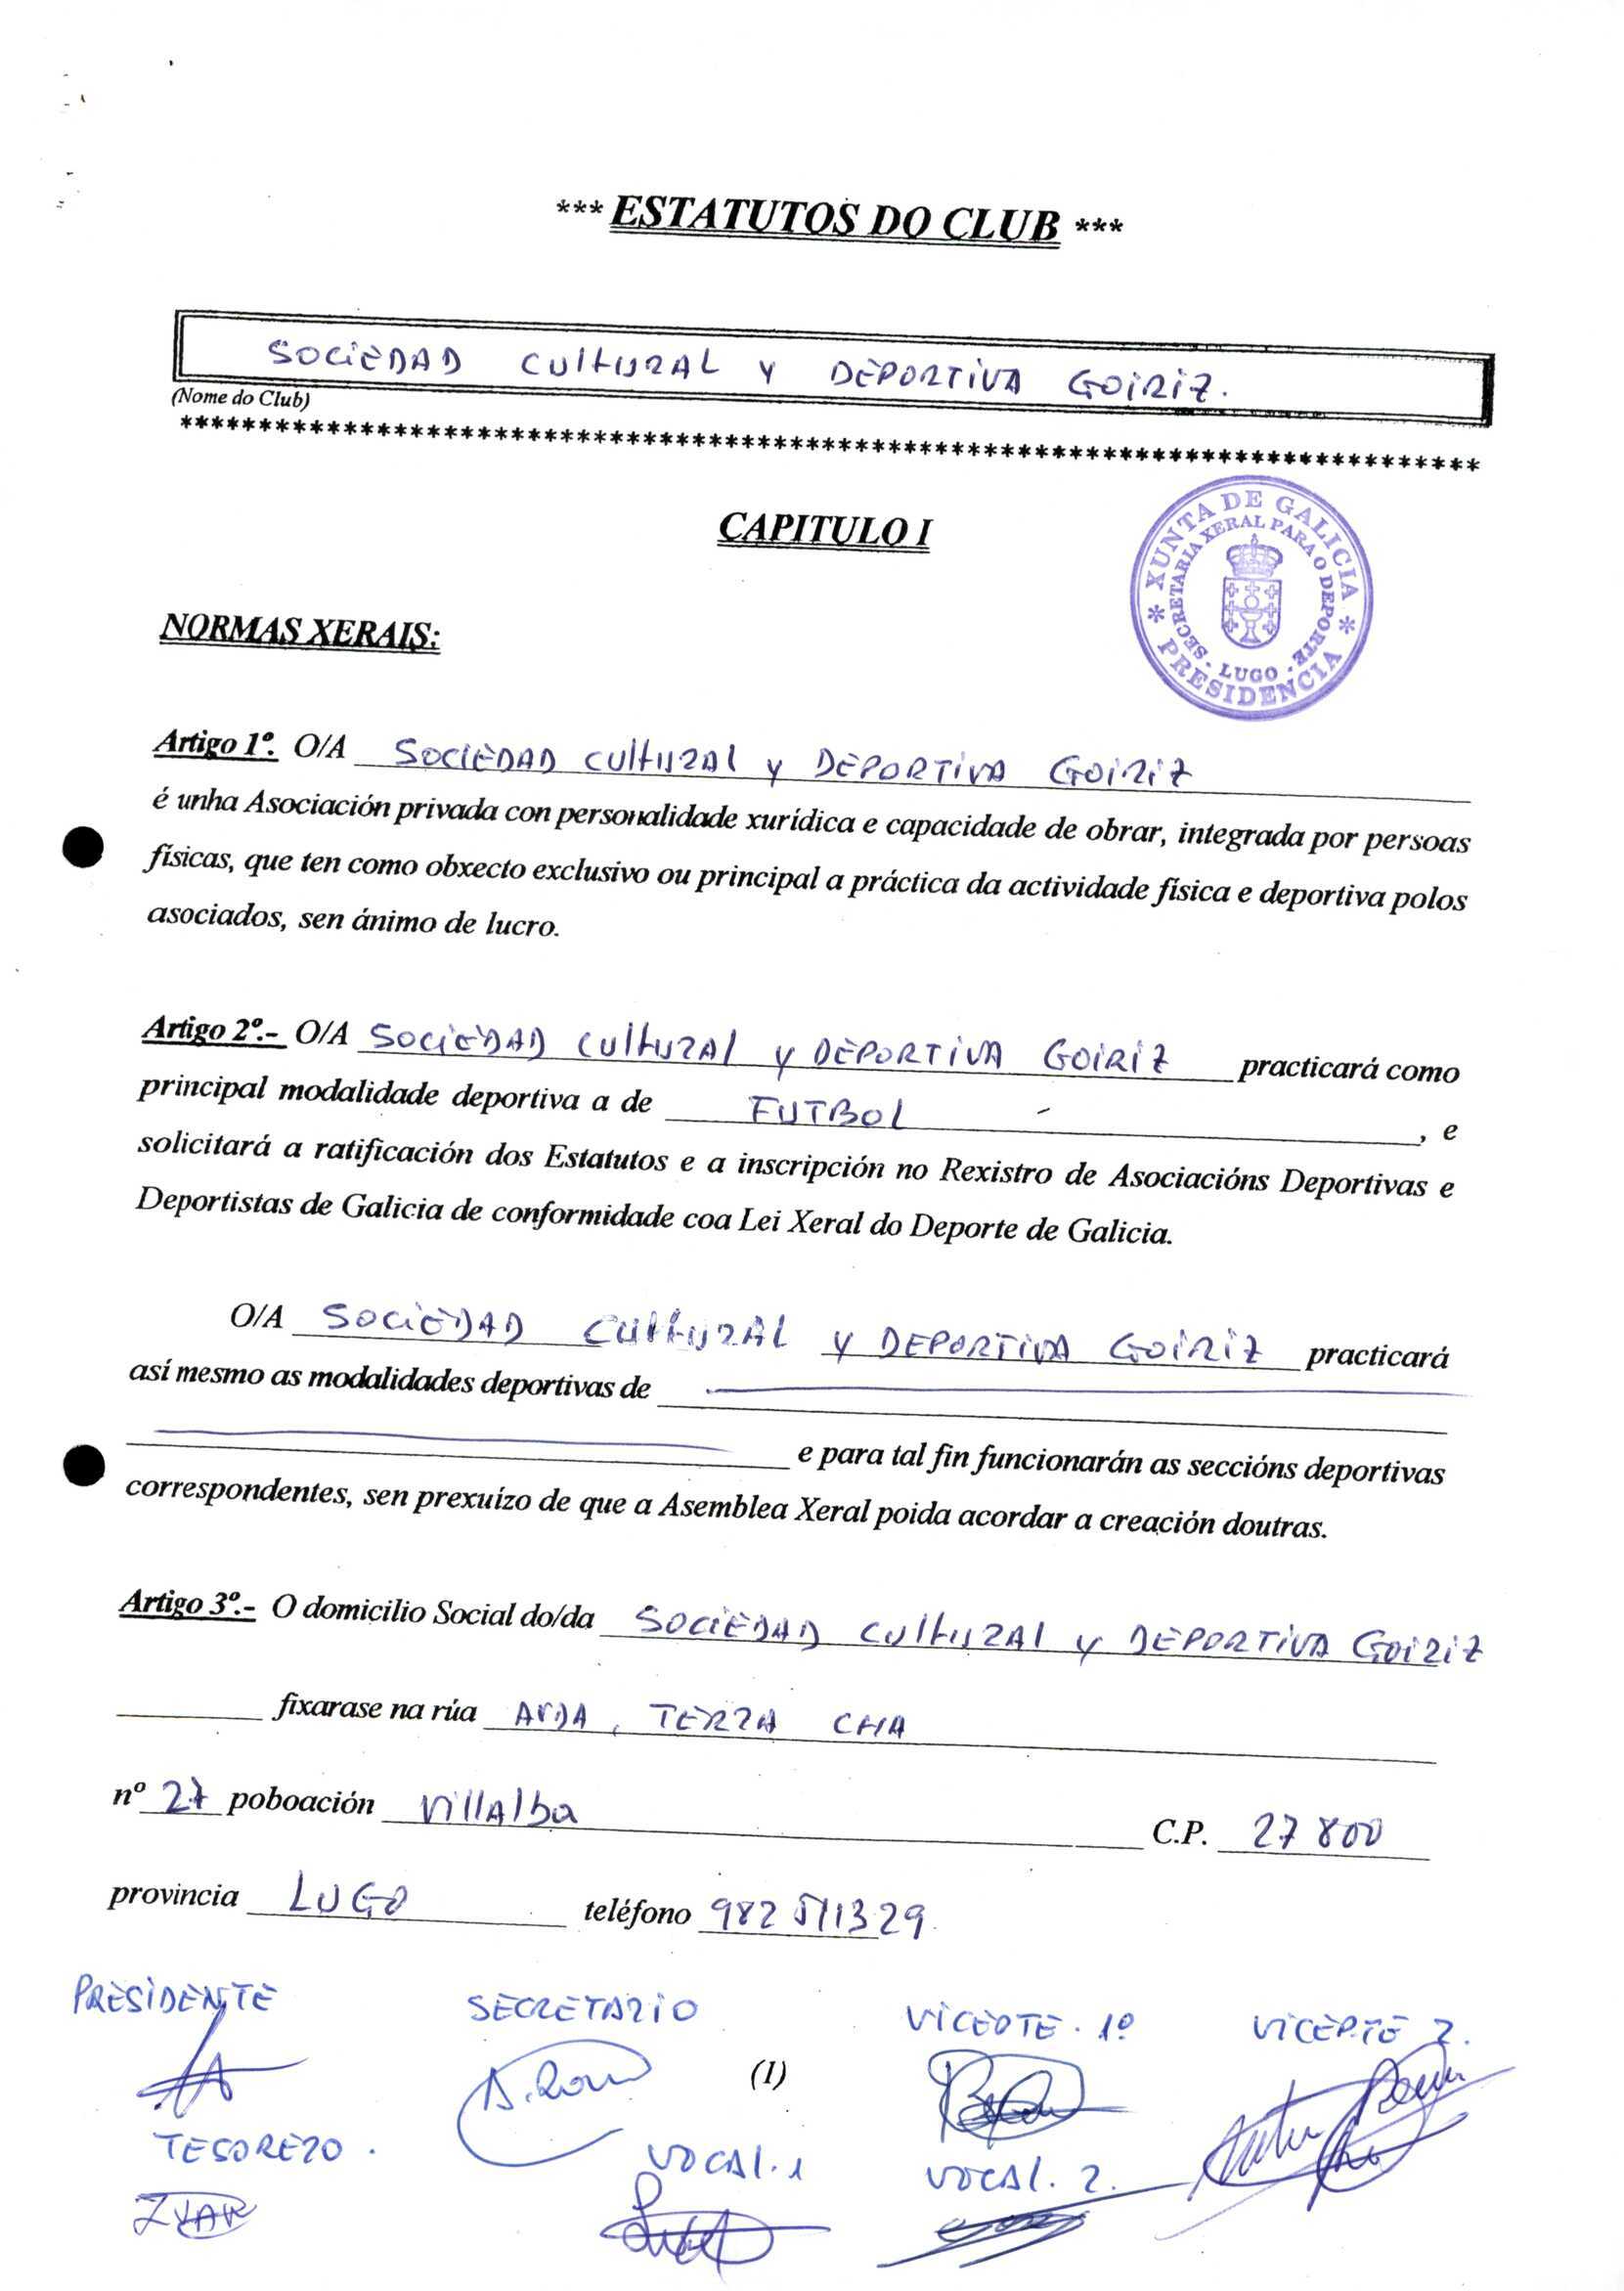 *** ESTATUTOS DO CLUB ***
SOCIEDAD CULTURAL Y DEPORTIVA GOIRIZ.
(Nome do Club)
CAPITULO I
XUNTA DE GALICIA
SECRETARIA XERAL PARA O DEPORTE
LUGO
PRESIDENCIA
NORMAS XERAIS:
Artigo 1º. O/A SOCIEDAD CULTURAL Y DEPORTIVA GOIRIZ
é unha Asociación privada con personalidade xurídica e capacidade de obrar, integrada por persoas
físicas, que ten como obxecto exclusivo ou principal a práctica da actividade física e deportiva polos
asociados, sen ánimo de lucro.
Artigo 2º.- O/A SOCIEDAD CULTURAL Y DEPORTIVA GOIRIZ practicará como
principal modalidade deportiva a de FUTBOL , e
solicitará a ratificación dos Estatutos e a inscripción no Rexistro de Asociacións Deportivas e
Deportistas de Galicia de conformidade coa Lei Xeral do Deporte de Galicia.
O/A SOCIEDAD CULTURAL Y DEPORTIVA GOIRIZ practicará
así mesmo as modalidades deportivas de
e para tal fin funcionarán as seccións deportivas
correspondentes, sen prexuízo de que a Asemblea Xeral poida acordar a creación doutras.
Artigo 3º.- O domicilio Social do/da SOCIEDAD CULTURAL Y DEPORTIVA GOIRIZ
fixarase na rúa AVDA, TERRA CHA
nº 27 poboación Villalba C.P. 27800
provincia LUGO teléfono 982 511329
PRESIDENTE SECRETARIO VICEPTE. 1º VICEPTE 2.
(1)
TESORERO. VOCAL. 1 VOCAL. 2.